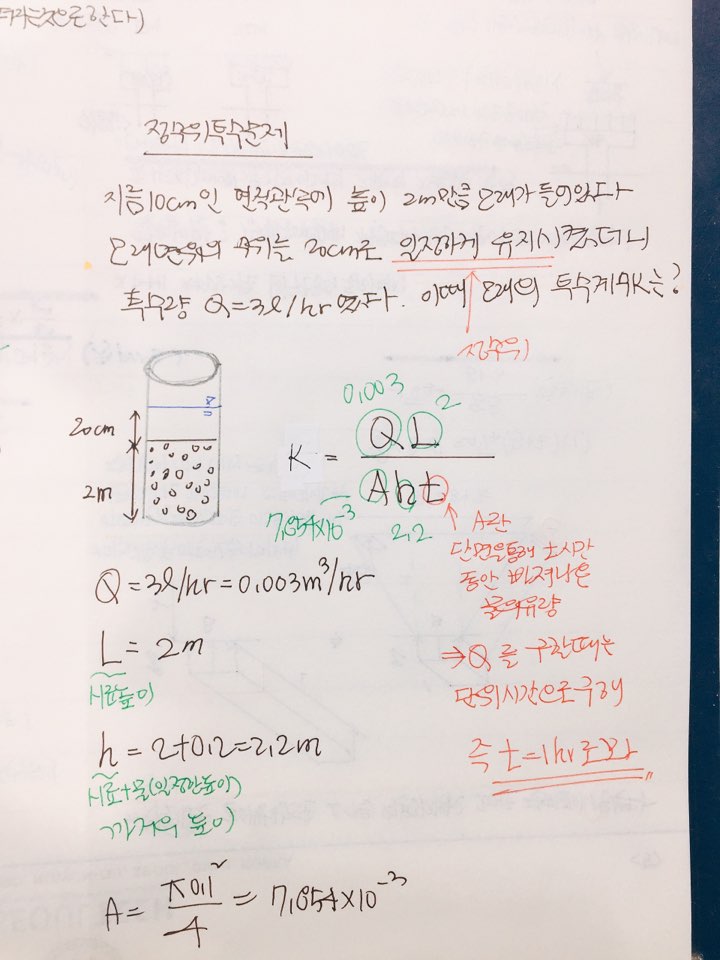 정수위투수문제
지름10cm인 연직관속에 높이 2m만큼 모래가 들어있다
모래면위의 수위는 20cm로 일정하게 유지시켰더니
투수량 Q=3l/hr 였다. 이때 모래의 투수계수K는?
정수위
20cm
2m
0.003
2
K = QL / Aht
7.854×10⁻³
2.2
A란
단면을통해 t시간
동안 빠져나온
물의유량
⇒Q를 구할때는
단위시간으로구해
즉 t=1hr로봐
Q=3l/hr=0.003m³/hr
L=2m
시료높이
h=2+0.2=2.2m
시료+물(일정한높이)
까지의 높이
A= π0.1² / 4 = 7.854×10⁻³